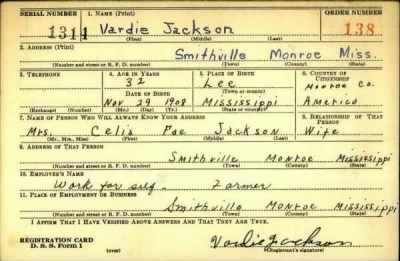 SERIAL NUMBER 1. NAME (Print) ORDER NUMBER
1314 Vardie Jackson 138
(First) (Middle) (Last)
2. ADDRESS (Print)
Smithville Monroe Miss.
(Number and street or R. F. D. number) (Town) (County) (State)
3. TELEPHONE 4. AGE IN YEARS 5. PLACE OF BIRTH 6. COUNTRY OF CITIZENSHIP
32 Lee Monroe Co.
DATE OF BIRTH (Town or county)
Nov. 29 1908 Mississippi America
(Exchange) (Number) (Mo.) (Day) (Yr.) (State or country)
7. NAME OF PERSON WHO WILL ALWAYS KNOW YOUR ADDRESS 8. RELATIONSHIP OF THAT PERSON
Mrs. Celia Jackson Wife
(Mr., Mrs., Miss) (First) (Middle) (Last)
9. ADDRESS OF THAT PERSON
Smithville Monroe Mississippi
(Number and street or R. F. D. number) (Town) (County) (State)
10. EMPLOYER'S NAME
Work for self. Farmer
11. PLACE OF EMPLOYMENT OR BUSINESS
Smithville Monroe Mississippi
(Number and street or R. F. D. number) (Town) (County) (State)
I AFFIRM THAT I HAVE VERIFIED ABOVE ANSWERS AND THAT THEY ARE TRUE.
REGISTRATION CARD
D. S. S. Form 1 (over) Vardie Jackson
(Registrant's signature)